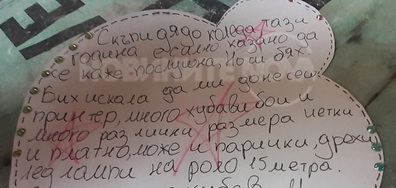 Скъпи дядо Коледа, тази
година е силно казано да
се каже послушна, но и бях.
Бих искала да ми донесеш:
принтер, много хубави бои и
много различни размера четки
и платно, може и парички, дрехи,
лед лампи на роло 15 метра.